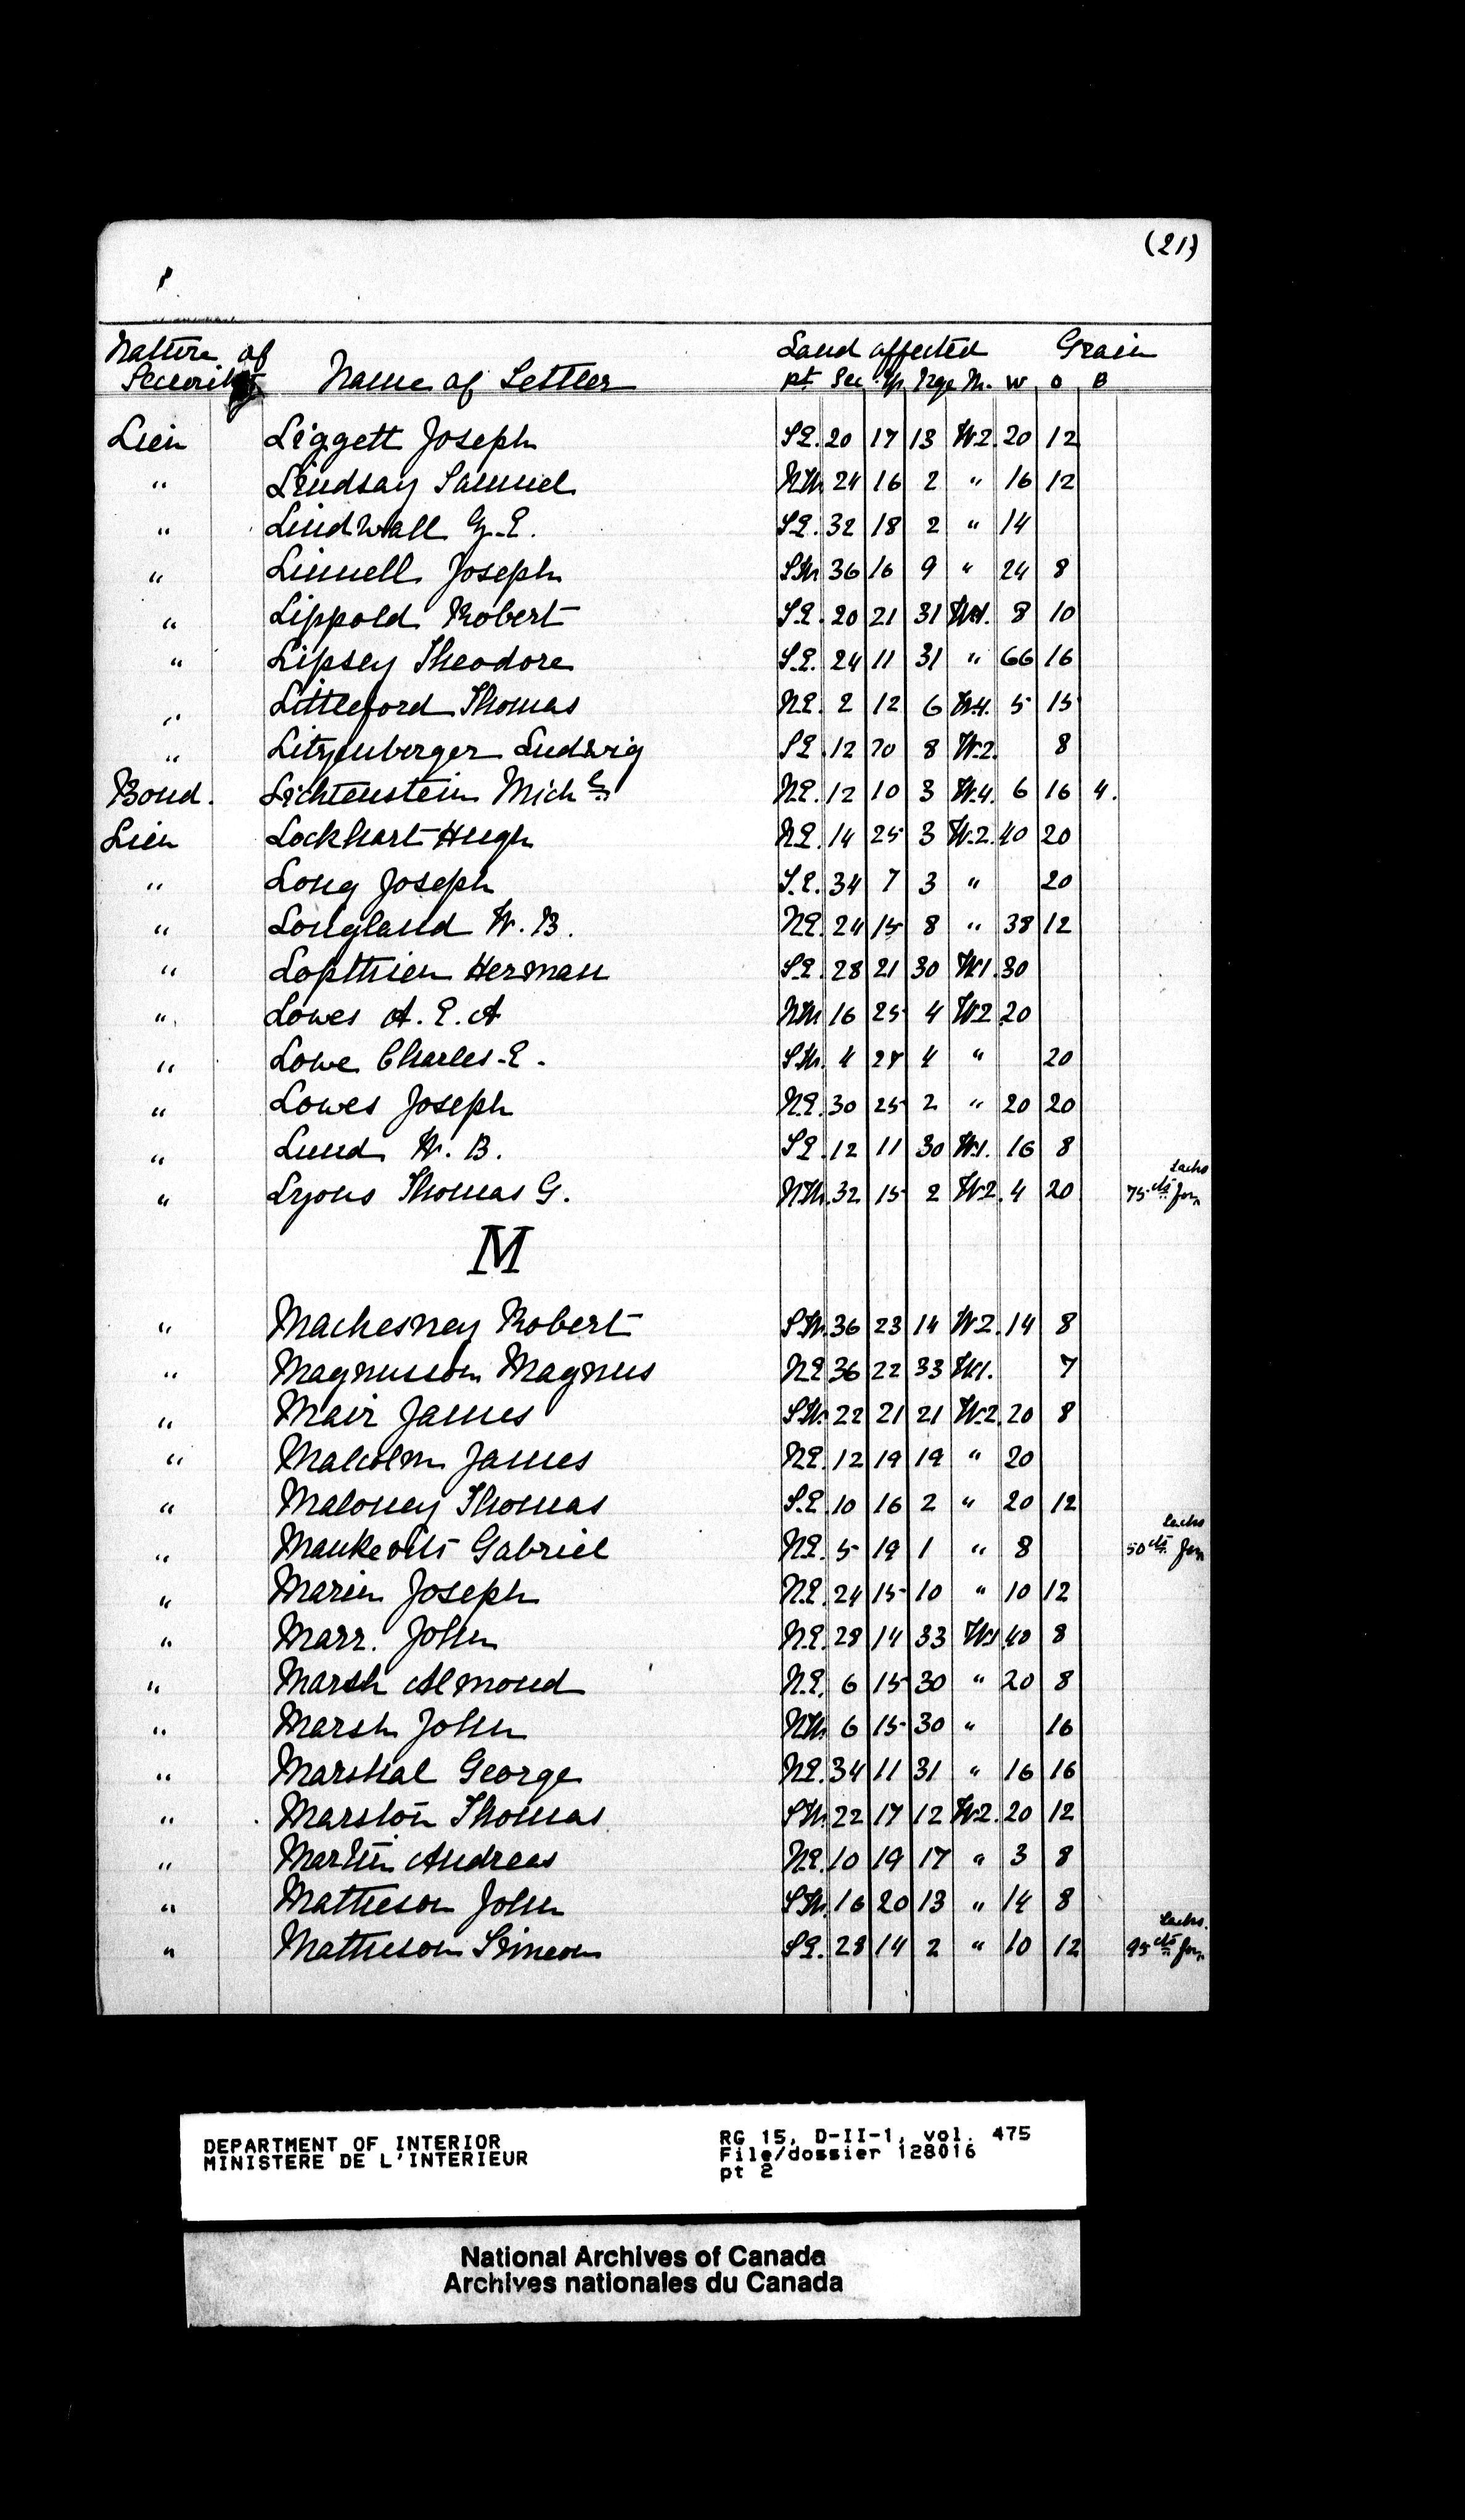 (21)
Nature of Security Name of Settler Land affected Grain
pt Sec Tp Rge M. W O B
Lien Liggett Joseph S.E. 20 17 13 W.2. 20 12
" Lindsay Samuel N.W. 24 16 2 " 16 12
" Lindwall G.E. S.E. 32 18 2 " 14
" Linnell Joseph S.W. 36 16 9 " 24 8
" Lippold Robert S.E. 20 21 31 W.1. 8 10
" Lipsey Theodore S.E. 24 11 31 " 66 16
" Littleford Thomas N.E. 2 12 6 W.4. 5 15
" Litzenberger Ludwig S.E. 12 20 8 W.2. 8
Bond. Lichtenstein Michl N.E. 12 10 3 W.4. 6 16 4.
Lien Lockhart Hugh N.E. 14 25 3 W.2. 40 20
" Long Joseph S.E. 34 7 3 " 20
" Longland W.B. N.E. 24 15 8 " 38 12
" Lopthien Herman S.E. 28 21 30 W.1. 30
" Lowes A.E.A N.W. 16 25 4 W.2 20
" Lowe Charles E. S.W. 4 27 4 " 20
" Lowes Joseph N.E. 30 25 2 " 20 20
" Lund W.B. S.E. 12 11 30 W.1. 16 8
" Lyons Thomas G. N.W. 32 15 2 W.2. 4 20 75 cts for sacks
M
" Machesney Robert S.W. 36 23 14 W.2. 14 8
" Magnusson Magnus N.E. 36 22 33 W.1. 7
" Mair James S.W. 22 21 21 W.2. 20 8
" Malcolm James N.E. 12 19 19 " 20
" Maloney Thomas S.E. 10 16 2 " 20 12
" Gabriel N.E. 5 19 1 " 8 50 cts for sacks
" Marin Joseph N.E. 24 15 10 " 10 12
" Marr. John N.E. 28 14 33 W.1 40 8
" Marsh Almond N.E. 6 15 30 " 20 8
" Marsh John N.W. 6 15 30 " 16
" Marshal George N.E. 34 11 31 " 16 16
" Marston Thomas S.W. 22 17 12 W.2. 20 12
" Martin Andreas N.E. 10 19 17 " 3 8
" Matheson John S.W. 16 20 13 " 14 8
" Matheson Simeon S.E. 28 14 2 " 10 12 95 cts for sacks.
DEPARTMENT OF INTERIOR
MINISTERE DE L'INTERIEUR
RG 15, D-II-1, vol. 475
File/dossier 128016
pt 2
National Archives of Canada
Archives nationales du Canada